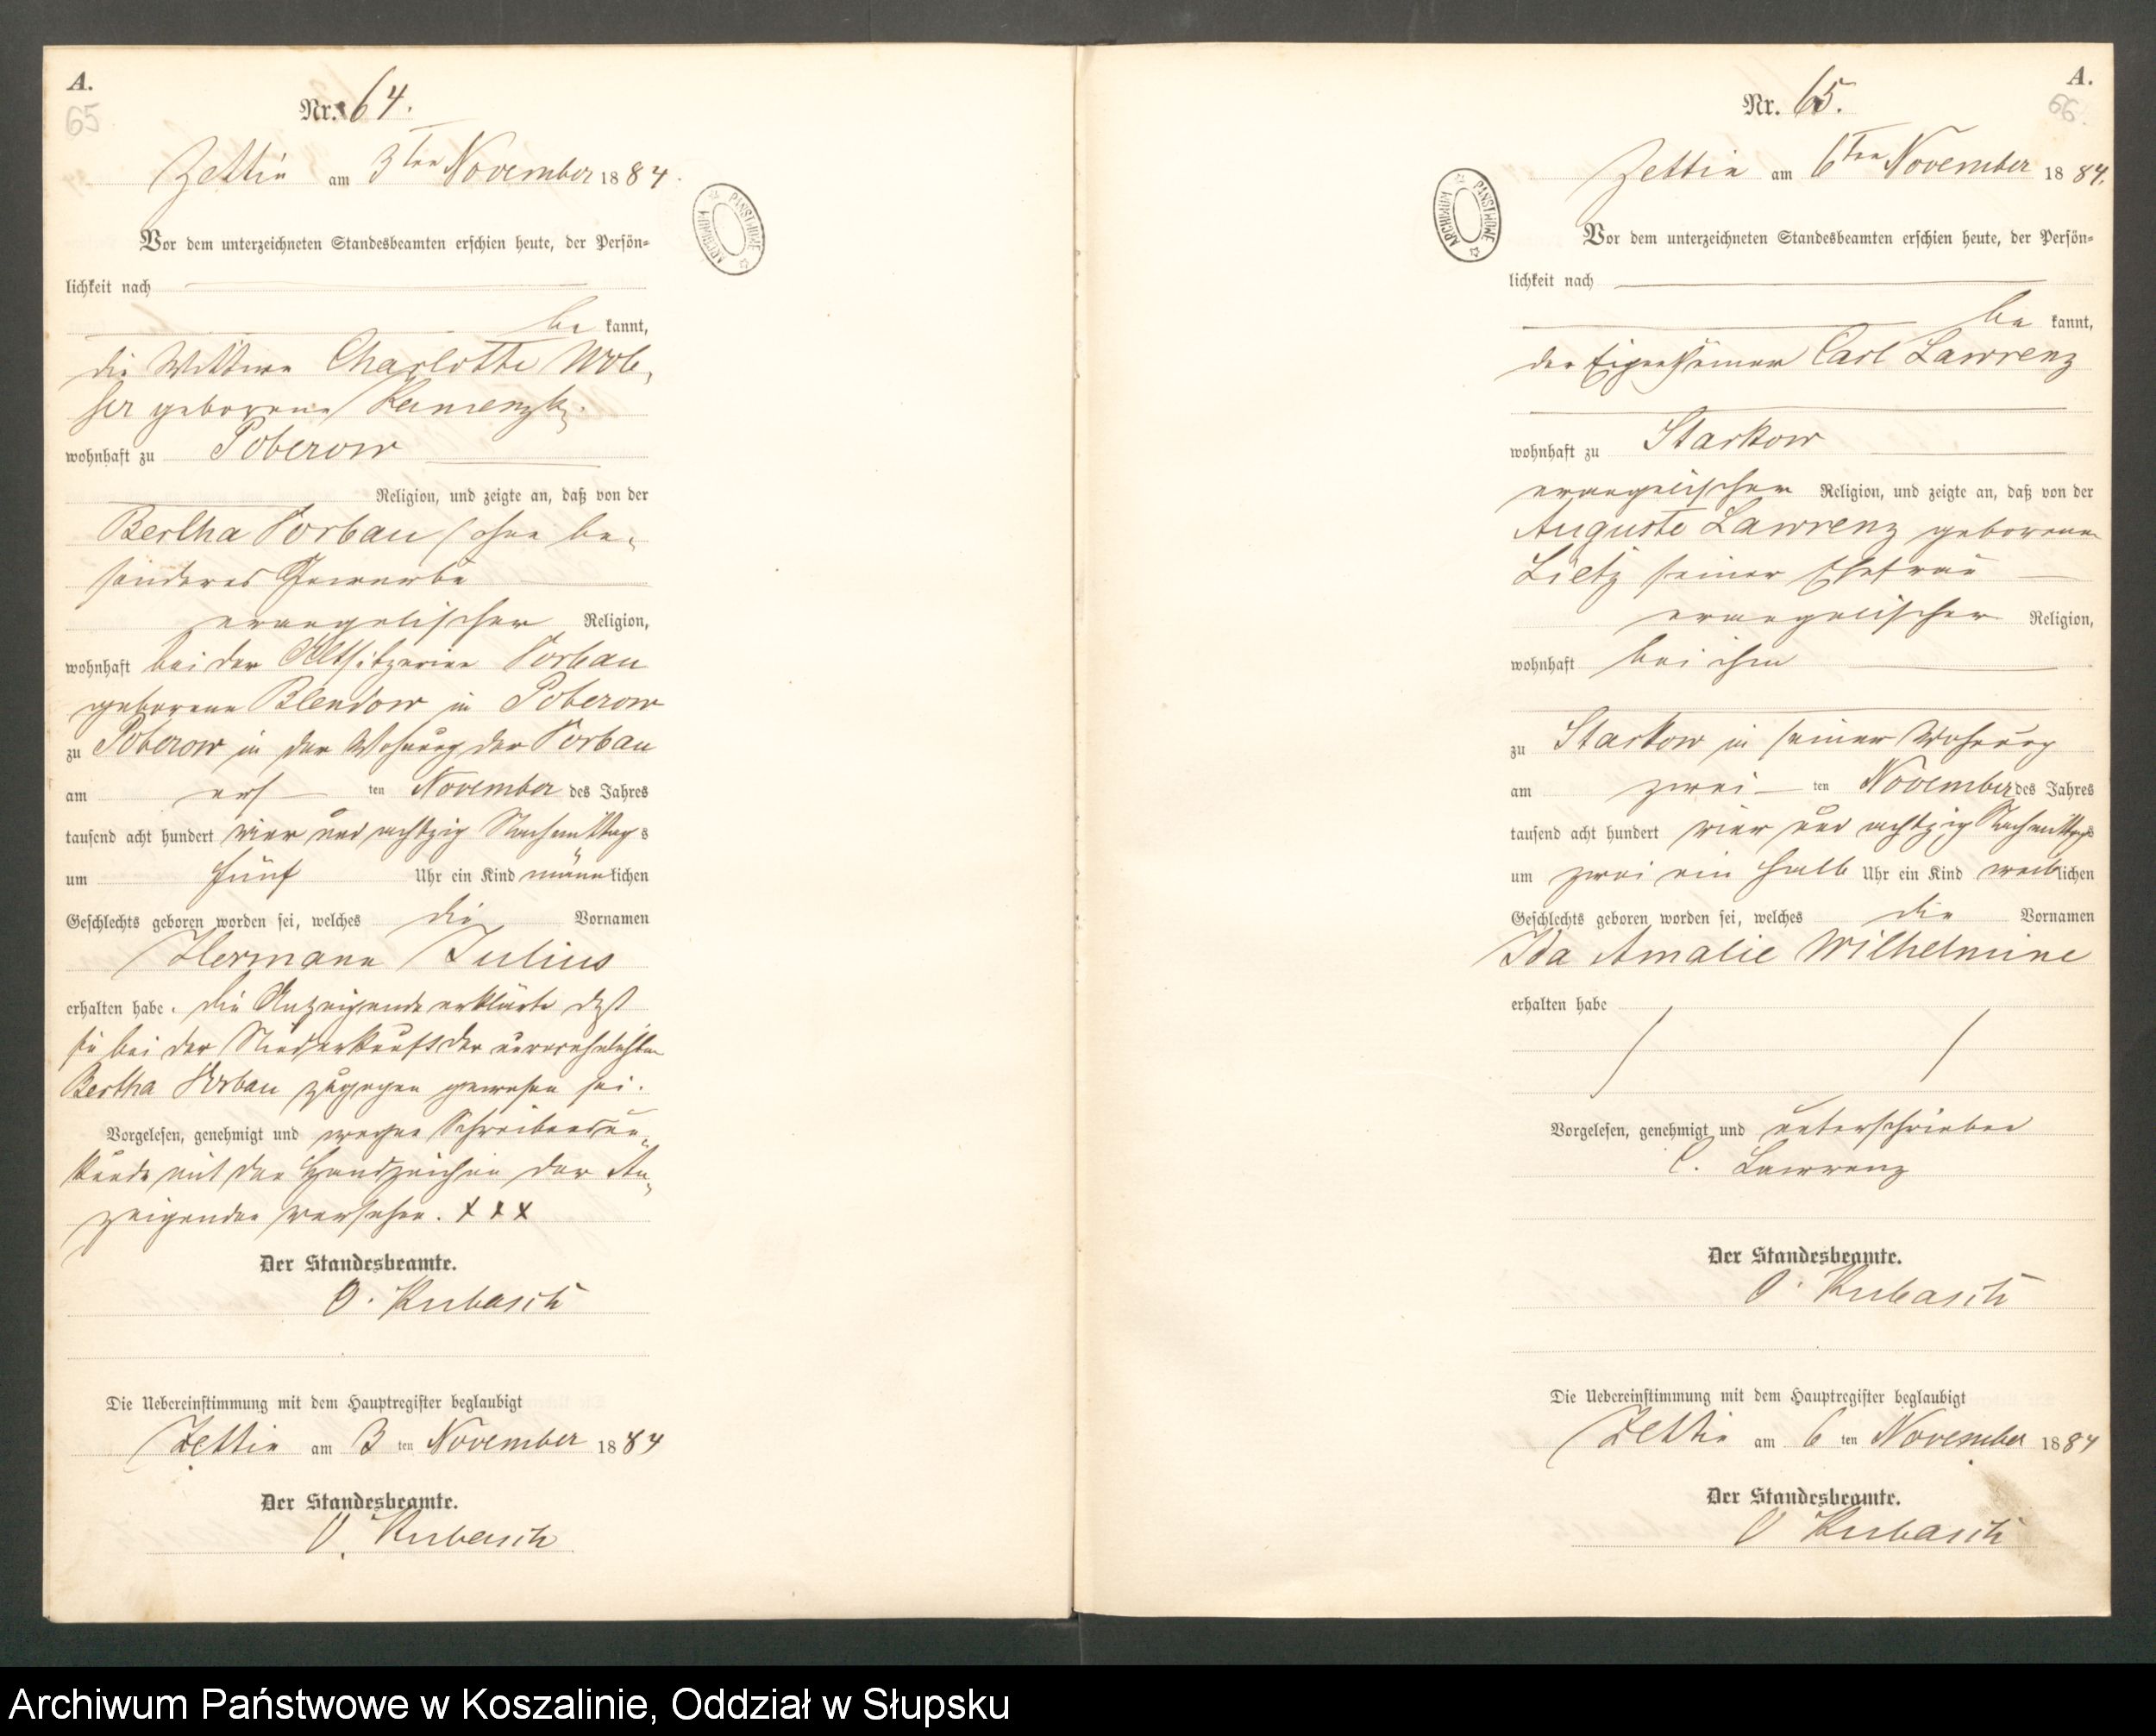 A.
65
Nr. 64.
Zettin am 3ten November 1884.
ARCHIWUM PAŃSTWOWE
Vor dem unterzeichneten Standesbeamten erschien heute, der Persön-
lichkeit nach
be kannt,
die Wittwe Charlotte Wob-
ser geborene Kamenzki
wohnhaft zu Poberow
Religion, und zeigte an, daß von der
Bertha Vorbau ohne be-
sonderes Gewerbe
evangelischer Religion,
wohnhaft bei der Altsitzerin Vorbau
geborene Blendow in Poberow
zu Poberow in der Wohnung der Vorbau
am ers ten November des Jahres
tausend acht hundert vier und achtzig Nachmittags
um fünf Uhr ein Kind männlichen
Geschlechts geboren worden sei, welches die Vornamen
Hermann Julius
erhalten habe. Die Anzeigende erklärte daß
sie bei der Niederkunft der unverehelichten
Bertha Vorbau zugegen gewesen sei.
Vorgelesen, genehmigt und wegen Schreibensun-
kunde mit den Handzeichen der An-
zeigenden versehen. x x x
Der Standesbeamte.
O. Kubasch
Die Uebereinstimmung mit dem Hauptregister beglaubigt
Zettin am 3 ten November 1884
Der Standesbeamte.
O. Kubasch
A.
66.
Nr. 65.
Zettin am 6ten November 1884.
ARCHIWUM PAŃSTWOWE
Vor dem unterzeichneten Standesbeamten erschien heute, der Persön-
lichkeit nach
be kannt,
der Eigenthümer Carl Lawrenz
wohnhaft zu Starkow
evangelischer Religion, und zeigte an, daß von der
Auguste Lawrenz geborene
Lietz seiner Ehefrau
evangelischer Religion,
wohnhaft bei ihm
zu Starkow in seiner Wohnung
am zwei ten November des Jahres
tausend acht hundert vier und achtzig Nachmittags
um zwei ein halb Uhr ein Kind weiblichen
Geschlechts geboren worden sei, welches die Vornamen
Ida Amalie Wilhelmine
erhalten habe
Vorgelesen, genehmigt und unterschrieben
C. Lawrenz
Der Standesbeamte.
O. Kubasch
Die Uebereinstimmung mit dem Hauptregister beglaubigt
Zettin am 6 ten November 1884
Der Standesbeamte.
O Kubasch
Archiwum Państwowe w Koszalinie, Oddział w Słupsku